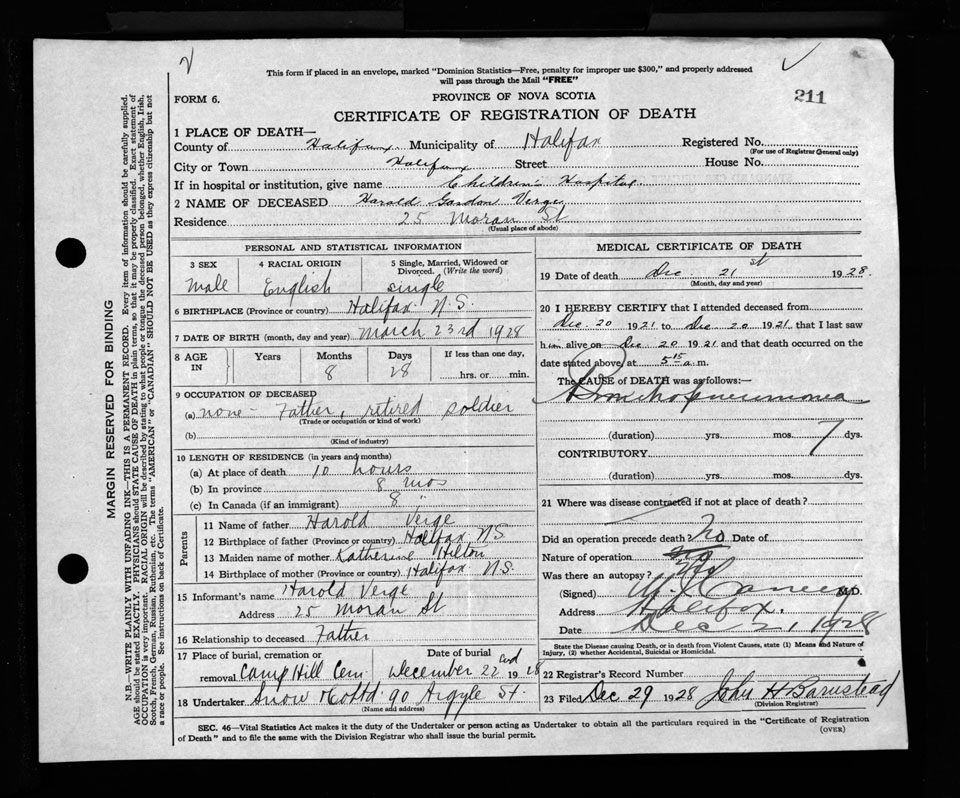 This form if placed in an envelope, marked "Dominion Statistics—Free, penalty for improper use $300," and properly addressed
will pass through the Mail "FREE"
FORM 6.
PROVINCE OF NOVA SCOTIA
211
CERTIFICATE OF REGISTRATION OF DEATH
1 PLACE OF DEATH—
County of Halifax Municipality of Halifax Registered No.
(For use of Registrar General only)
City or Town Halifax Street House No.
If in hospital or institution, give name Children's Hospital
2 NAME OF DECEASED Harold Gordon Verge
Residence 25 Moran St
(Usual place of abode)
PERSONAL AND STATISTICAL INFORMATION
3 SEX 4 RACIAL ORIGIN 5 Single, Married, Widowed or
Divorced. (Write the word)
Male English single
6 BIRTHPLACE (Province or country) Halifax N.S.
7 DATE OF BIRTH (month, day and year) March 23rd 1928
8 AGE IN Years Months Days If less than one day,
8 28 hrs. or min.
9 OCCUPATION OF DECEASED
(a) none - Father, retired soldier
(Trade or occupation or kind of work)
(b)
(Kind of industry)
10 LENGTH OF RESIDENCE (in years and months)
(a) At place of death 10 hours
(b) In province 8 mos
(c) In Canada (if an immigrant) 8 "
Parents
11 Name of father Harold Verge
12 Birthplace of father (Province or country) Halifax N.S.
13 Maiden name of mother Katherine Hilton
14 Birthplace of mother (Province or country) Halifax N.S.
15 Informant's name Harold Verge
Address 25 Moran St
16 Relationship to deceased Father
17 Place of burial, cremation or Date of burial
removal Camp Hill Cem December 22nd 1928
18 Undertaker Snow & Co Ltd 90 Argyle St.
(Name and address)
MEDICAL CERTIFICATE OF DEATH
19 Date of death Dec. 21st 1928.
(Month, day and year)
20 I HEREBY CERTIFY that I attended deceased from
Dec. 20 1921 to Dec 20 1921, that I last saw
him alive on Dec 20 1921 and that death occurred on the
date stated above, at 5 15 a.m.
The CAUSE of DEATH was as follows:—
Bronchopneumonia
(duration) yrs. mos. 7 dys.
CONTRIBUTORY
(duration) yrs. mos. dys.
21 Where was disease contracted if not at place of death?
Did an operation precede death? No Date of
Nature of operation
Was there an autopsy? No
(Signed) M.D.
Address Halifax.
Date Dec 21, 1928
State the Disease causing Death, or in death from Violent Causes, state (1) Means and Nature of
Injury, (2) whether Accidental, Suicidal or Homicidal.
22 Registrar's Record Number
23 Filed Dec 29 1928 John H Barnstead
(Division Registrar)
SEC. 46—Vital Statistics Act makes it the duty of the Undertaker or person acting as Undertaker to obtain all the particulars required in the "Certificate of Registration
of Death" and to file the same with the Division Registrar who shall issue the burial permit.
(OVER)
MARGIN RESERVED FOR BINDING
N.B.—WRITE PLAINLY WITH UNFADING INK—THIS IS A PERMANENT RECORD. Every item of information should be carefully supplied.
AGE should be stated EXACTLY. PHYSICIANS should STATE CAUSE OF DEATH in plain terms, so that it may be properly classified. Exact statement of
OCCUPATION is very important. RACIAL ORIGIN will be described by stating to what people or tongue the deceased person belonged, whether English, Irish,
Scotch, French, German, Russian, Ruthenian, etc. The terms "AMERICAN" or "CANADIAN" SHOULD NOT BE USED as they express citizenship but not
a race or people. See instructions on back of Certificate.